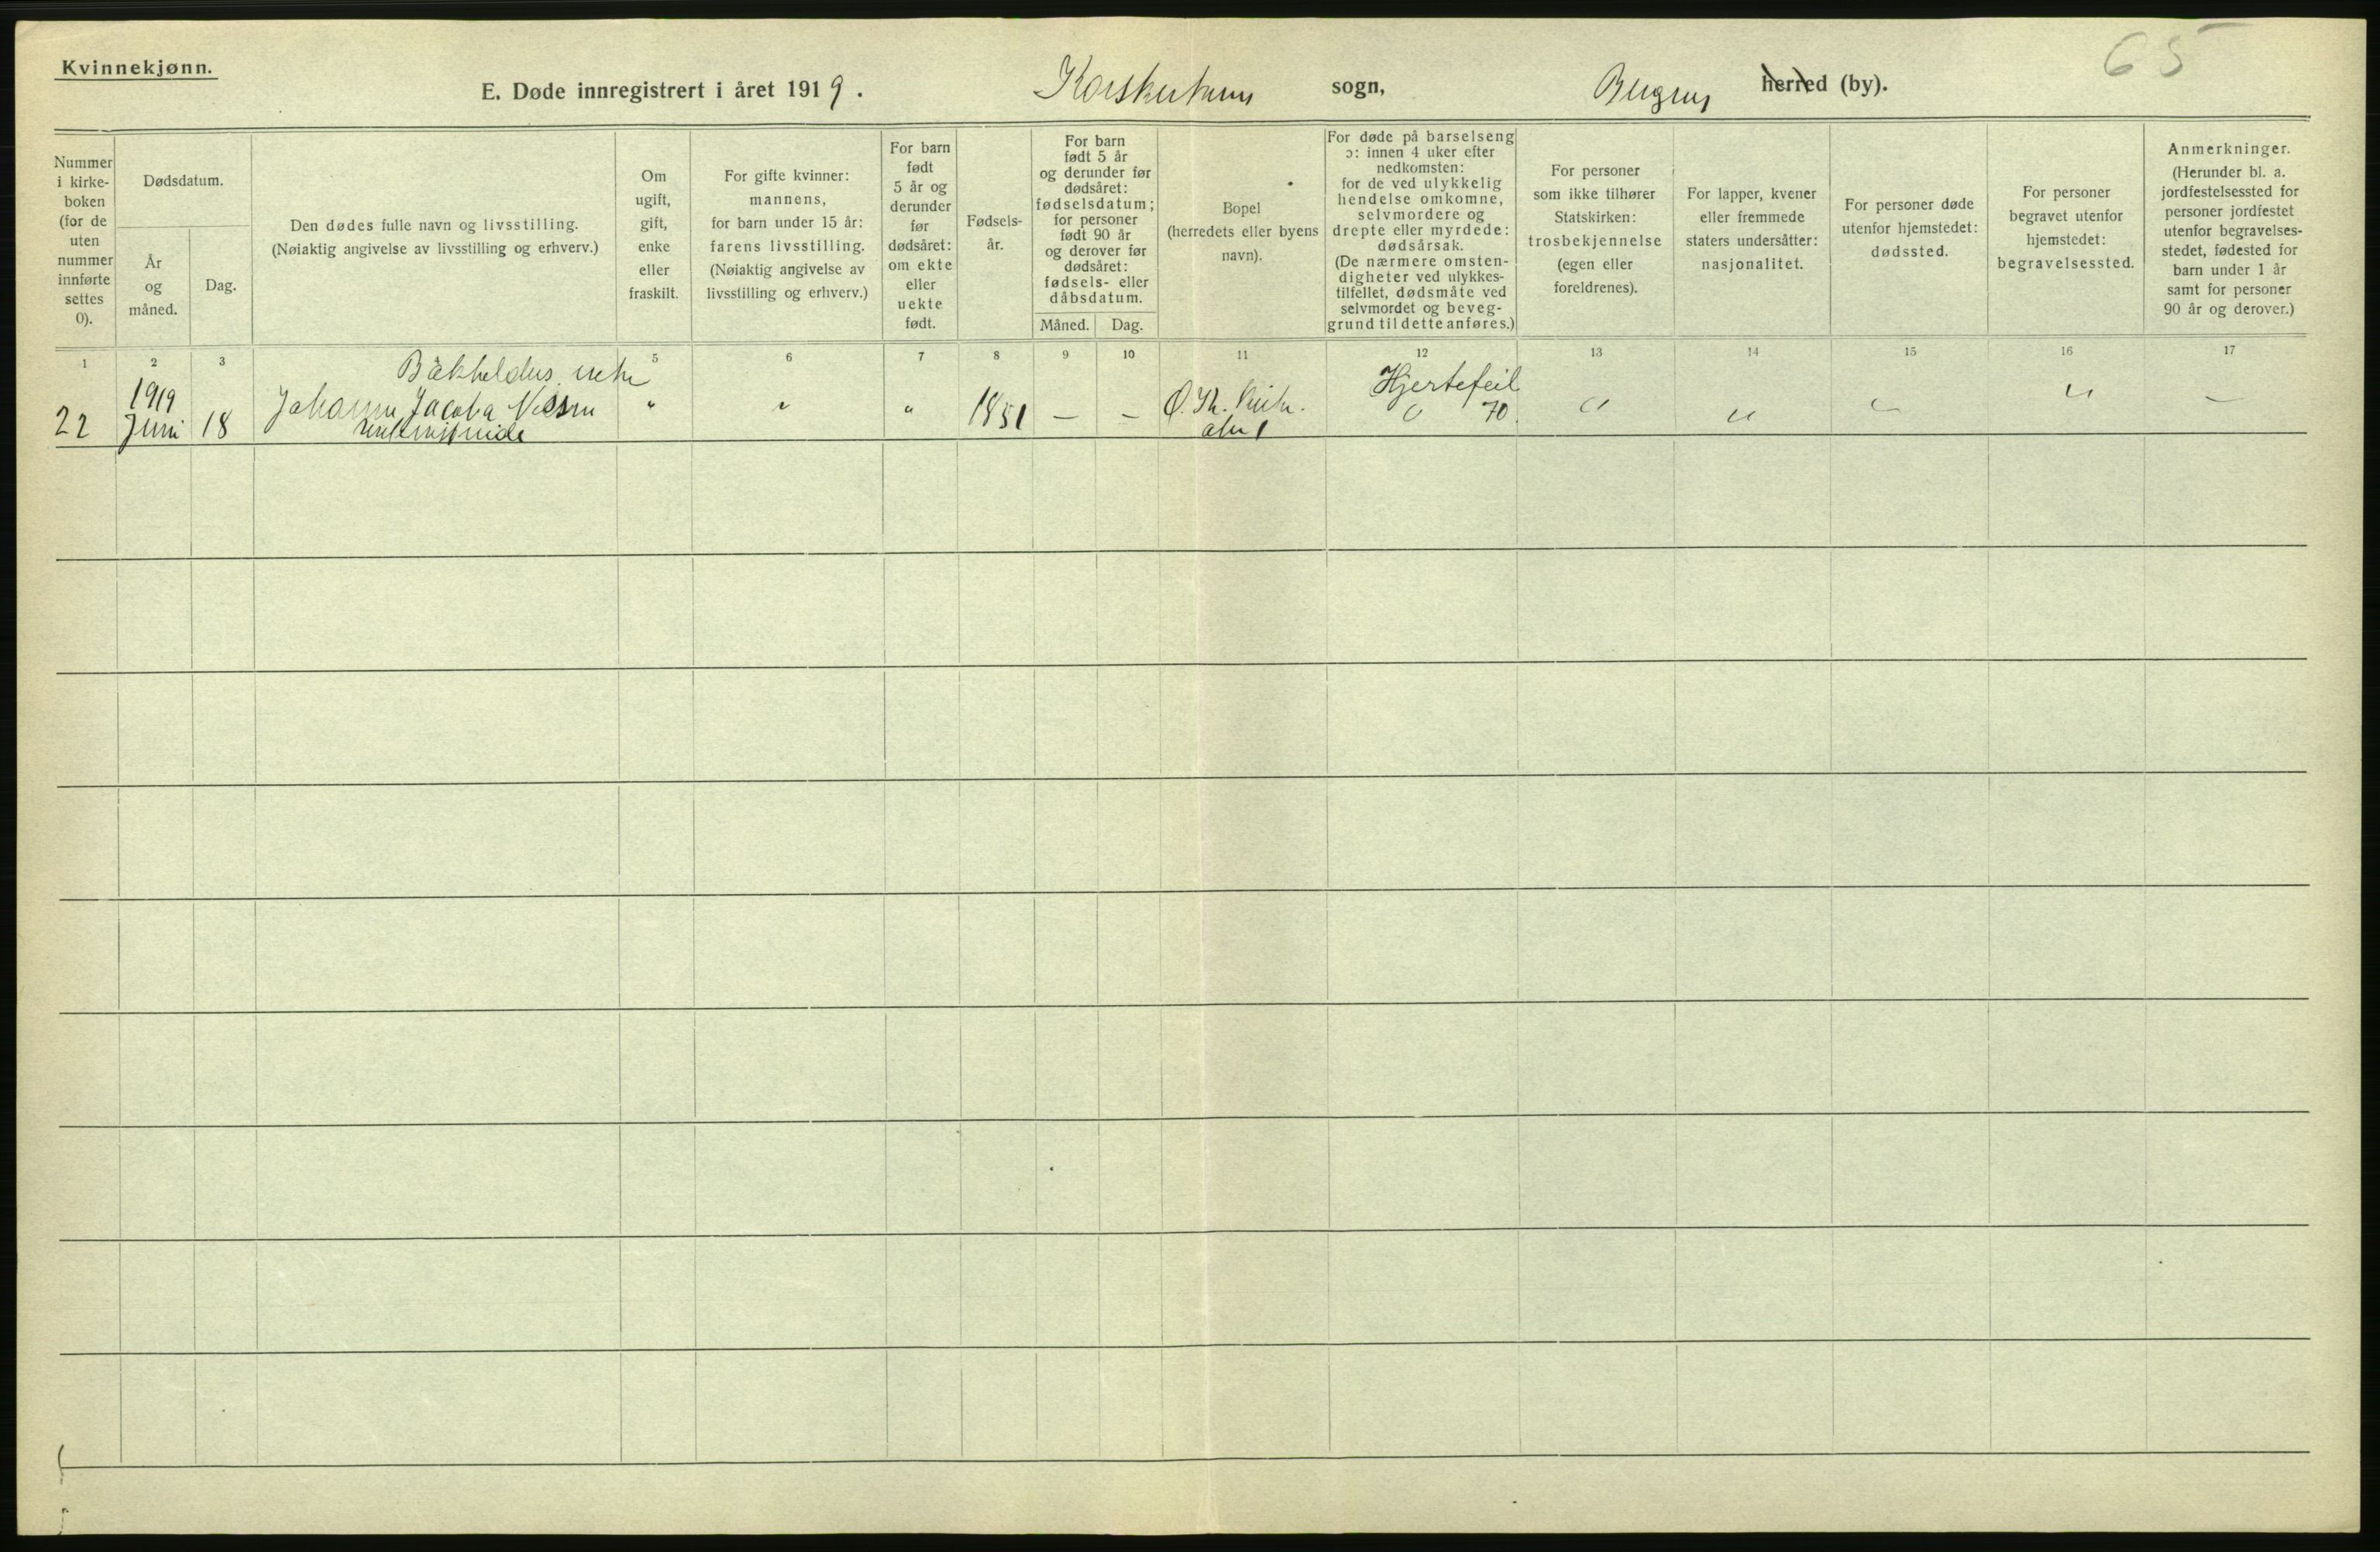 Kvinnekjønn.
65
E. Døde innregistrert i året 1919. Korskirkens sogn, Bergens herred (by).
Nummer
i kirke-
boken
(for de
uten
nummer
innførte
settes
0).
Dødsdatum.
År
og
måned.
Dag.
Den dødes fulle navn og livsstilling.
(Nøiaktig angivelse av livsstilling og erhverv.)
Om
ugift,
gift,
enke
eller
fraskilt.
For gifte kvinner:
mannens,
for barn under 15 år:
farens livsstilling.
(Nøiaktig angivelse av
livsstilling og erhverv.)
For barn
født
5 år og
derunder
før
dødsåret:
om ekte
eller
uekte
født.
Fødsels-
år.
For barn
født 5 år
og derunder før
dødsåret:
fødselsdatum;
for personer
født 90 år
og derover før
dødsåret:
fødsels- eller
dåbsdatum.
Måned. Dag.
Bopel
(herredets eller byens
navn).
For døde på barselseng
ɔ: innen 4 uker efter
nedkomsten:
for de ved ulykkelig
hendelse omkomne,
selvmordere og
drepte eller myrdede:
dødsårsak.
(De nærmere omsten-
digheter ved ulykkes-
tilfellet, dødsmåte ved
selvmordet og beveg-
grund til dette anføres.)
For personer
som ikke tilhører
Statskirken:
trosbekjennelse
(egen eller
foreldrenes).
For lapper, kvener
eller fremmede
staters undersåtter:
nasjonalitet.
For personer døde
utenfor hjemstedet:
dødssted.
For personer
begravet utenfor
hjemstedet:
begravelsessted.
Anmerkninger.
(Herunder bl. a.
jordfestelsessted for
personer jordfestet
utenfor begravelses-
stedet, fødested for
barn under 1 år
samt for personer
90 år og derover.)
1 2 3 5 6 7 8 9 10 11 12 13 14 15 16 17
1919 Hjertefeil
22 Juni 18 Johanne Jacoba Nissen " " " 1851 — — Ø. Sk. " 70. " " " " —